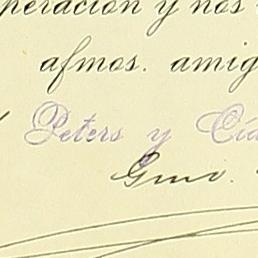 peración y nos
afmos. amig
Peters y Cía